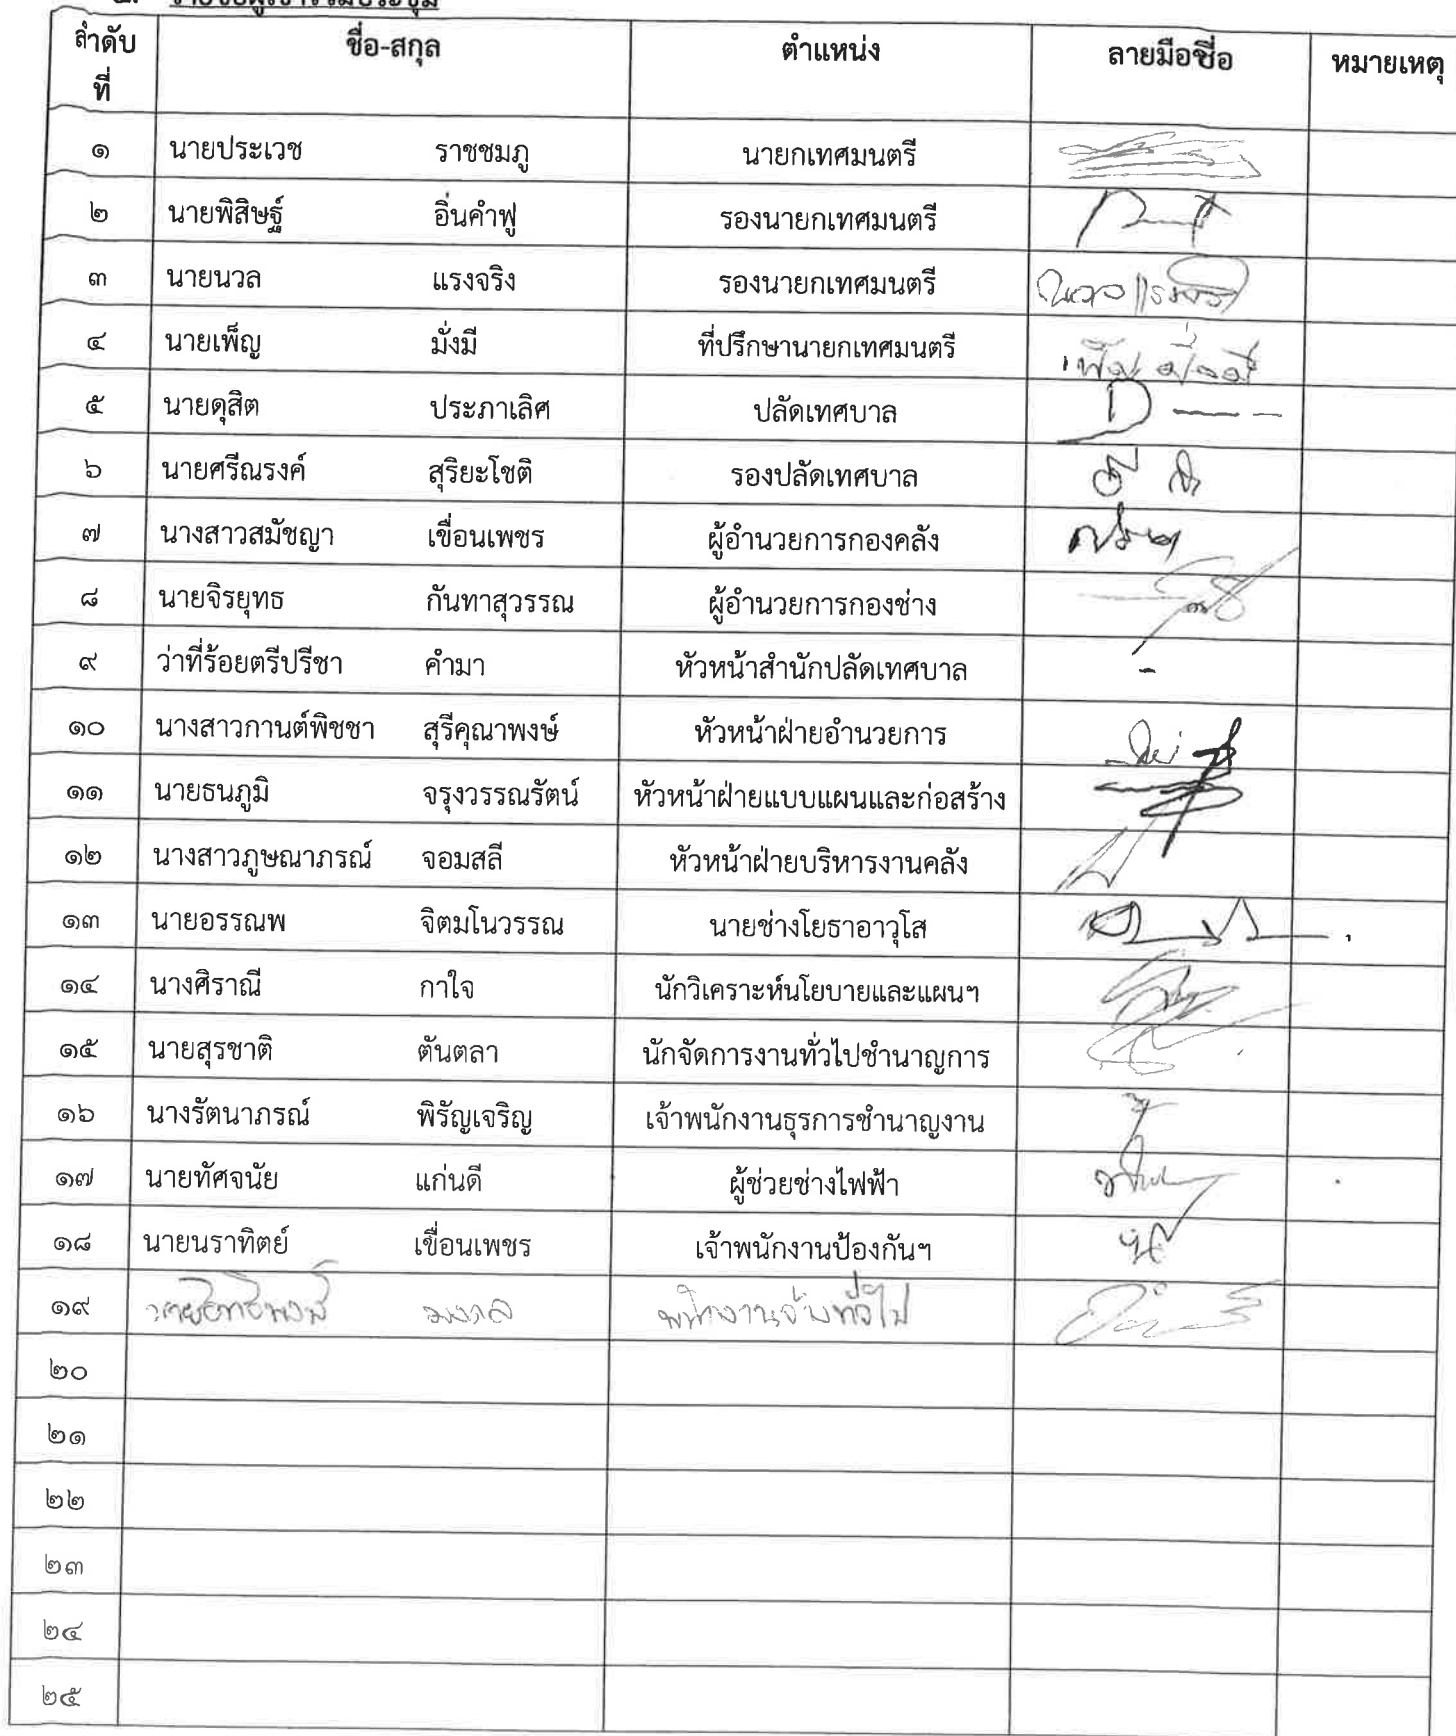 ๒. รายชื่อผู้เข้าร่วมประชุม
ลำดับที่ ชื่อ-สกุล ตำแหน่ง ลายมือชื่อ หมายเหตุ
๑ นายประเวช ราชชมภู นายกเทศมนตรี
๒ นายพิสิษฐ์ อิ่นคำฟู รองนายกเทศมนตรี
๓ นายนวล แรงจริง รองนายกเทศมนตรี นวล แรงจริง
๔ นายเพ็ญ มั่งมี ที่ปรึกษานายกเทศมนตรี เพ็ญ มั่งมี
๕ นายดุสิต ประภาเลิศ ปลัดเทศบาล
๖ นายศรีณรงค์ สุริยะโชติ รองปลัดเทศบาล
๗ นางสาวสมัชญา เขื่อนเพชร ผู้อำนวยการกองคลัง
๘ นายจิรยุทธ กันทาสุวรรณ ผู้อำนวยการกองช่าง
๙ ว่าที่ร้อยตรีปรีชา คำมา หัวหน้าสำนักปลัดเทศบาล -
๑๐ นางสาวกานต์พิชชา สุรีคุณาพงษ์ หัวหน้าฝ่ายอำนวยการ
๑๑ นายธนภูมิ จรุงวรรณรัตน์ หัวหน้าฝ่ายแบบแผนและก่อสร้าง
๑๒ นางสาวภูษณาภรณ์ จอมสลี หัวหน้าฝ่ายบริหารงานคลัง
๑๓ นายอรรณพ จิตมโนวรรณ นายช่างโยธาอาวุโส
๑๔ นางศิราณี กาใจ นักวิเคราะห์นโยบายและแผนฯ
๑๕ นายสุรชาติ ตันตลา นักจัดการงานทั่วไปชำนาญการ
๑๖ นางรัตนาภรณ์ พิรัญเจริญ เจ้าพนักงานธุรการชำนาญงาน
๑๗ นายทัศจนัย แก่นดี ผู้ช่วยช่างไฟฟ้า
๑๘ นายนราทิตย์ เขื่อนเพชร เจ้าพนักงานป้องกันฯ
๑๙ นายอิทธิพงษ์ มงคล พนักงานจ้างทั่วไป
๒๐
๒๑
๒๒
๒๓
๒๔
๒๕